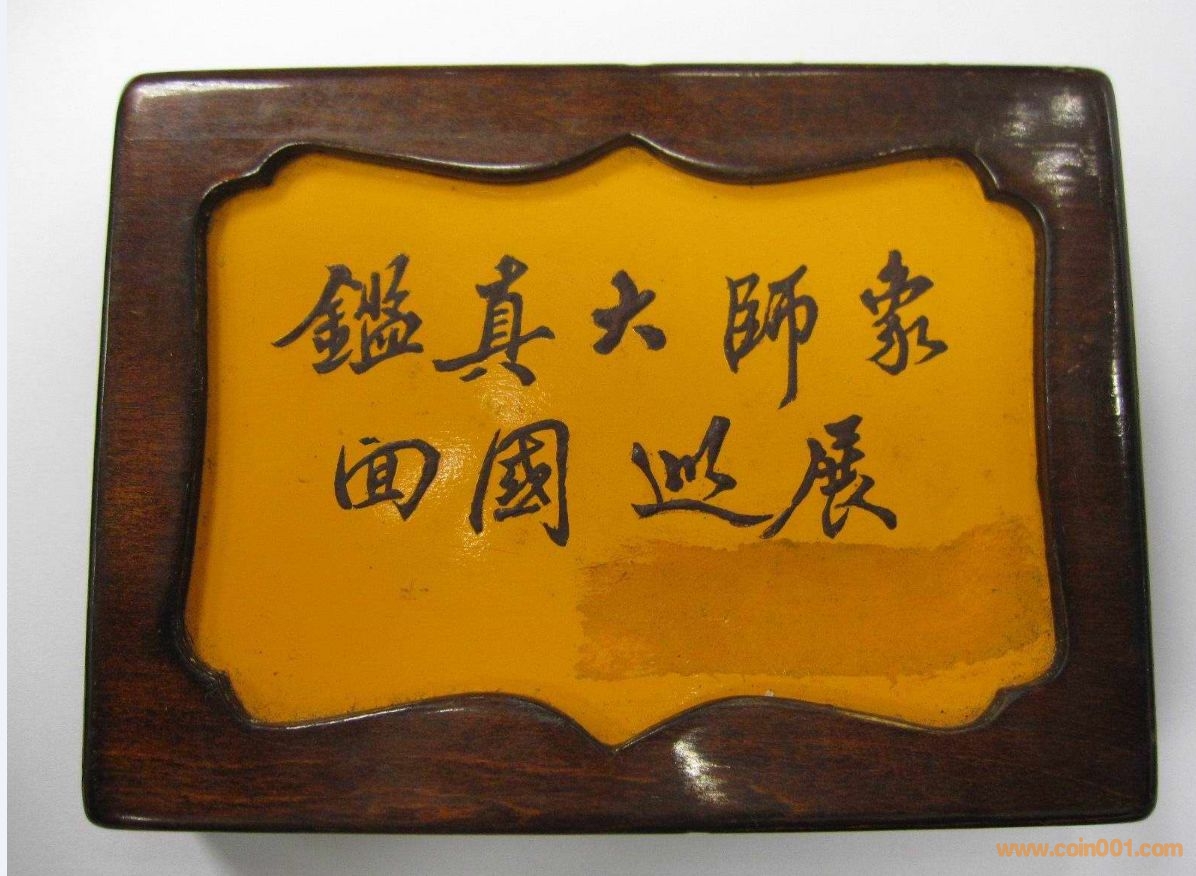 鑑真大師象
回國巡展
www.coin001.com